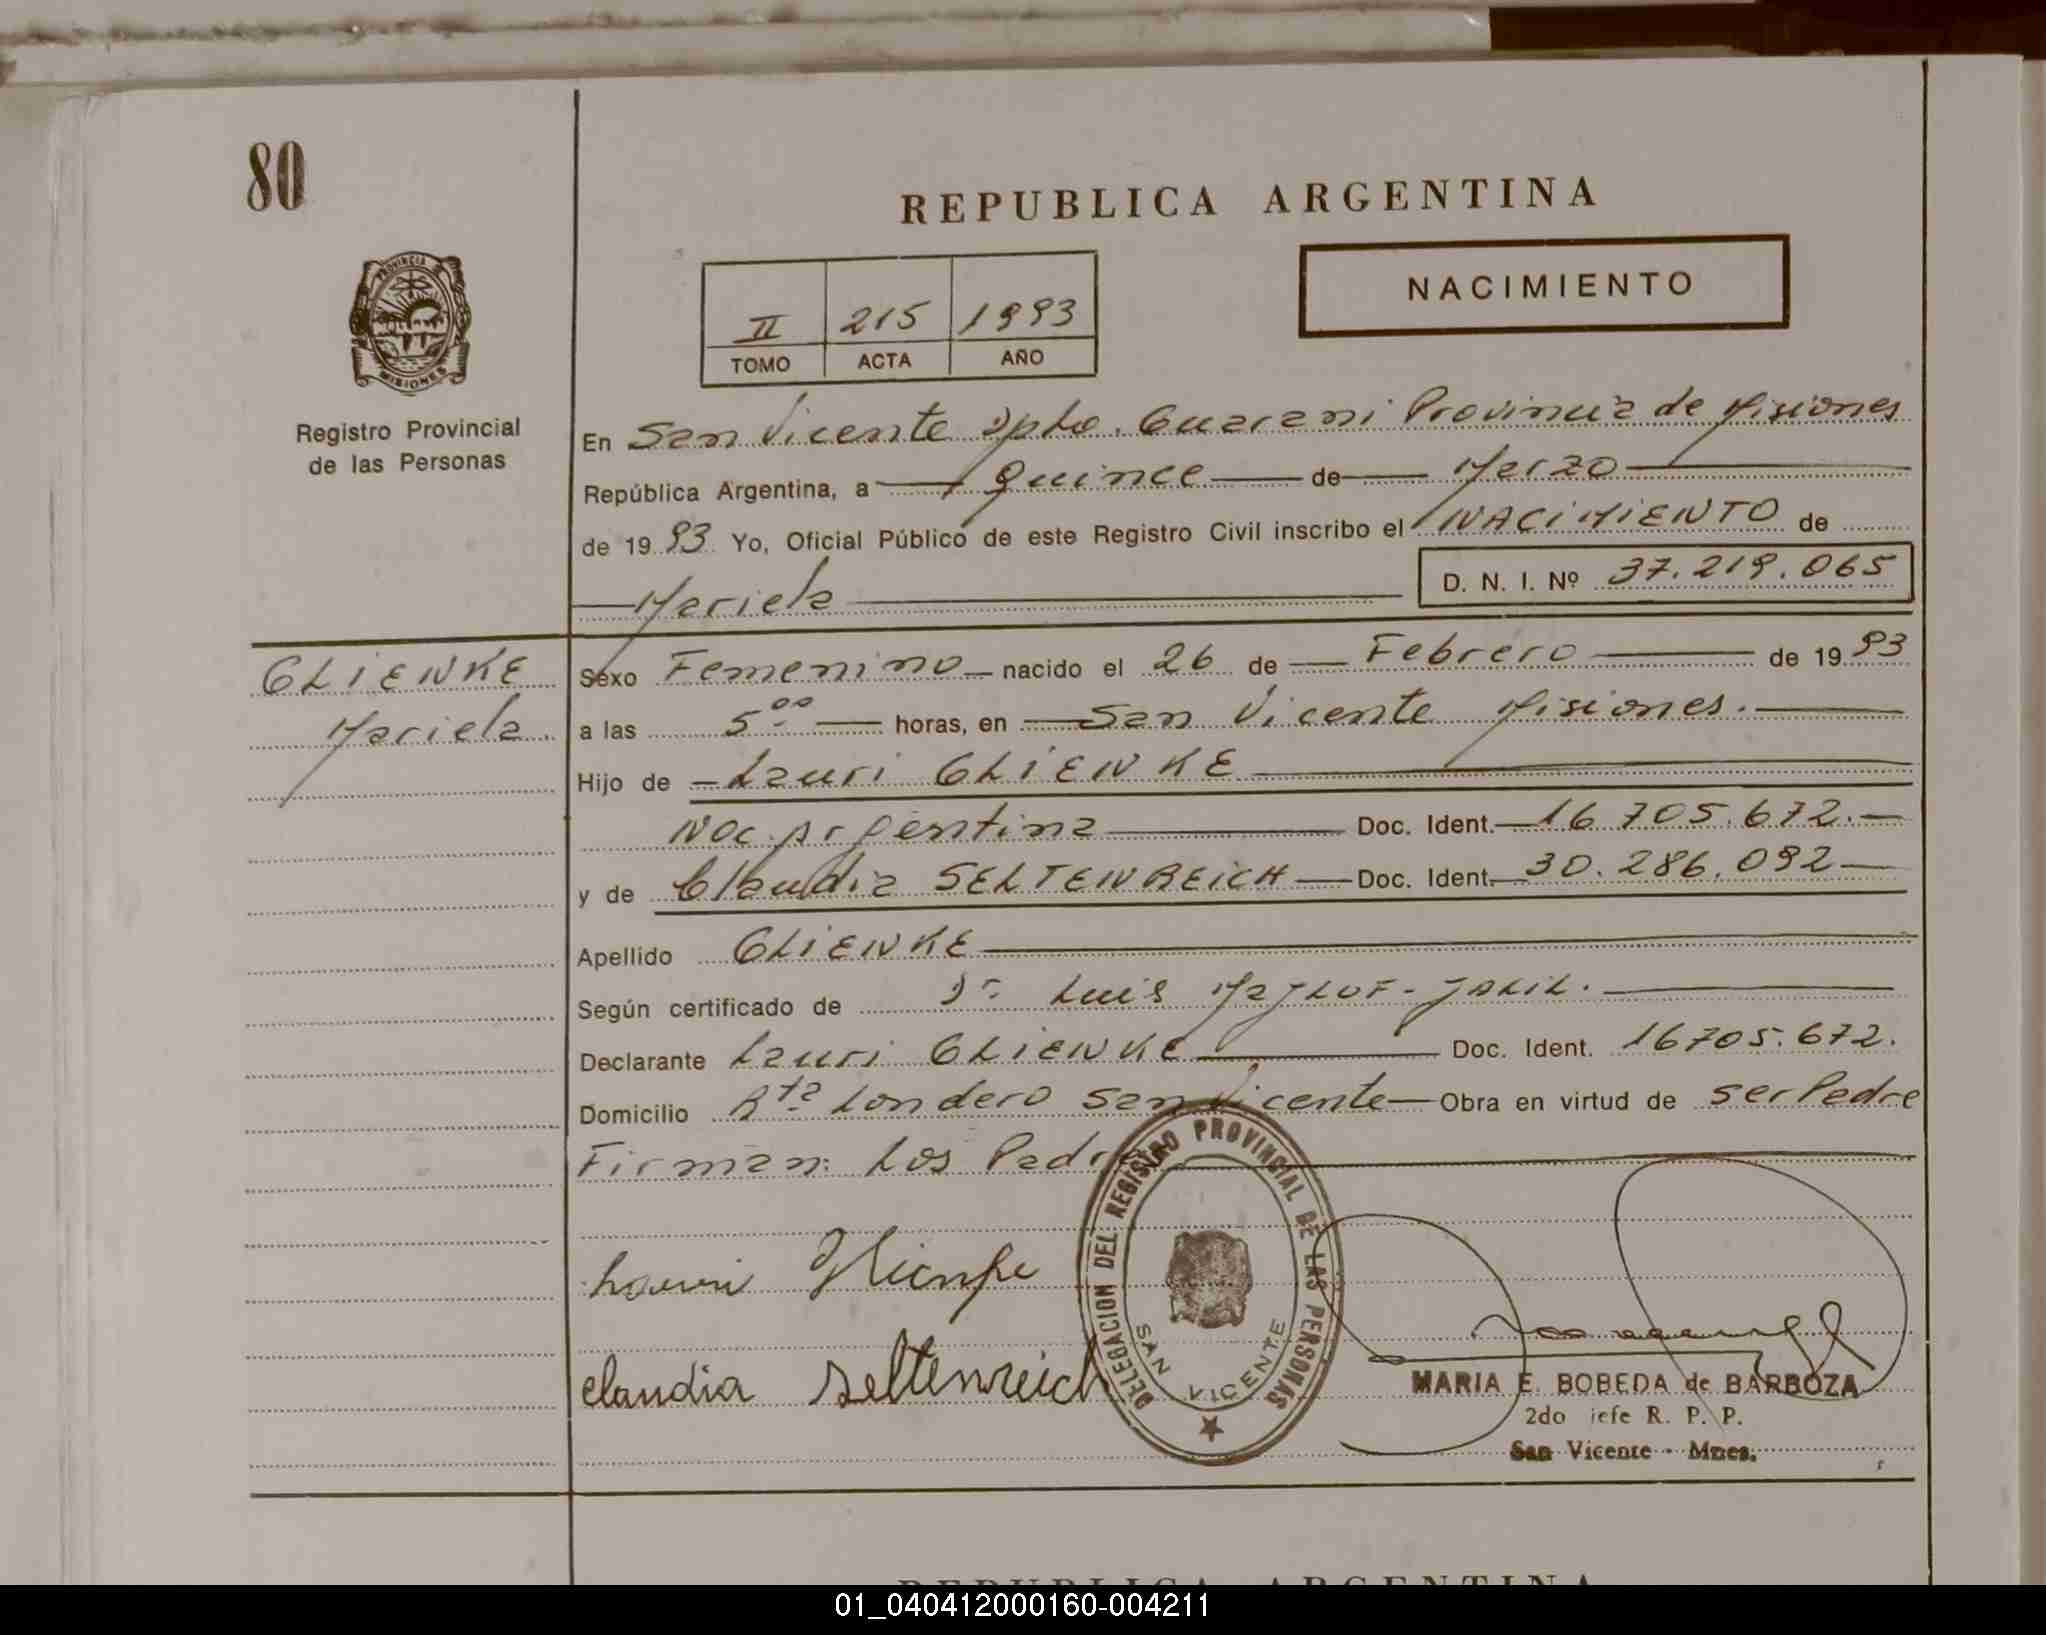 80
REPUBLICA ARGENTINA
NACIMIENTO
II 215 1993
TOMO ACTA AÑO
PROVINCIA DE
MISIONES
Registro Provincial
de las Personas
En San Vicente Dpto. Guarani Provincia de Misiones
República Argentina, a Quince de Marzo
de 1993 Yo, Oficial Público de este Registro Civil inscribo el NACIMIENTO de
Mariela D. N. I. Nº 37.219.065
GLIENKE
Mariela.
Sexo Femenino nacido el 26 de Febrero de 1993
a las 5 00 horas, en San Vicente Misiones.
Hijo de Lauri GLIENKE
Nac. Argentina Doc. Ident. 16 705.672.
y de Claudia SELTENREICH Doc. Ident. 30.286.092
Apellido GLIENKE
Según certificado de Dr. Luis
Declarante Lauri GLIENKE Doc. Ident. 16705.672.
Domicilio Rta Londero San Vicente Obra en virtud de ser Padre
Firman: Los Padres
Lauri Glienke
claudia seltenreich
DELEGACION DEL REGISTRO PROVINCIAL DE LAS PERSONAS
SAN VICENTE
MARIA E. BOBEDA de BARBOZA
2do jefe R. P. P.
San Vicente - Mnes.
REPUBLICA ARGENTINA
01_040412000160-004211